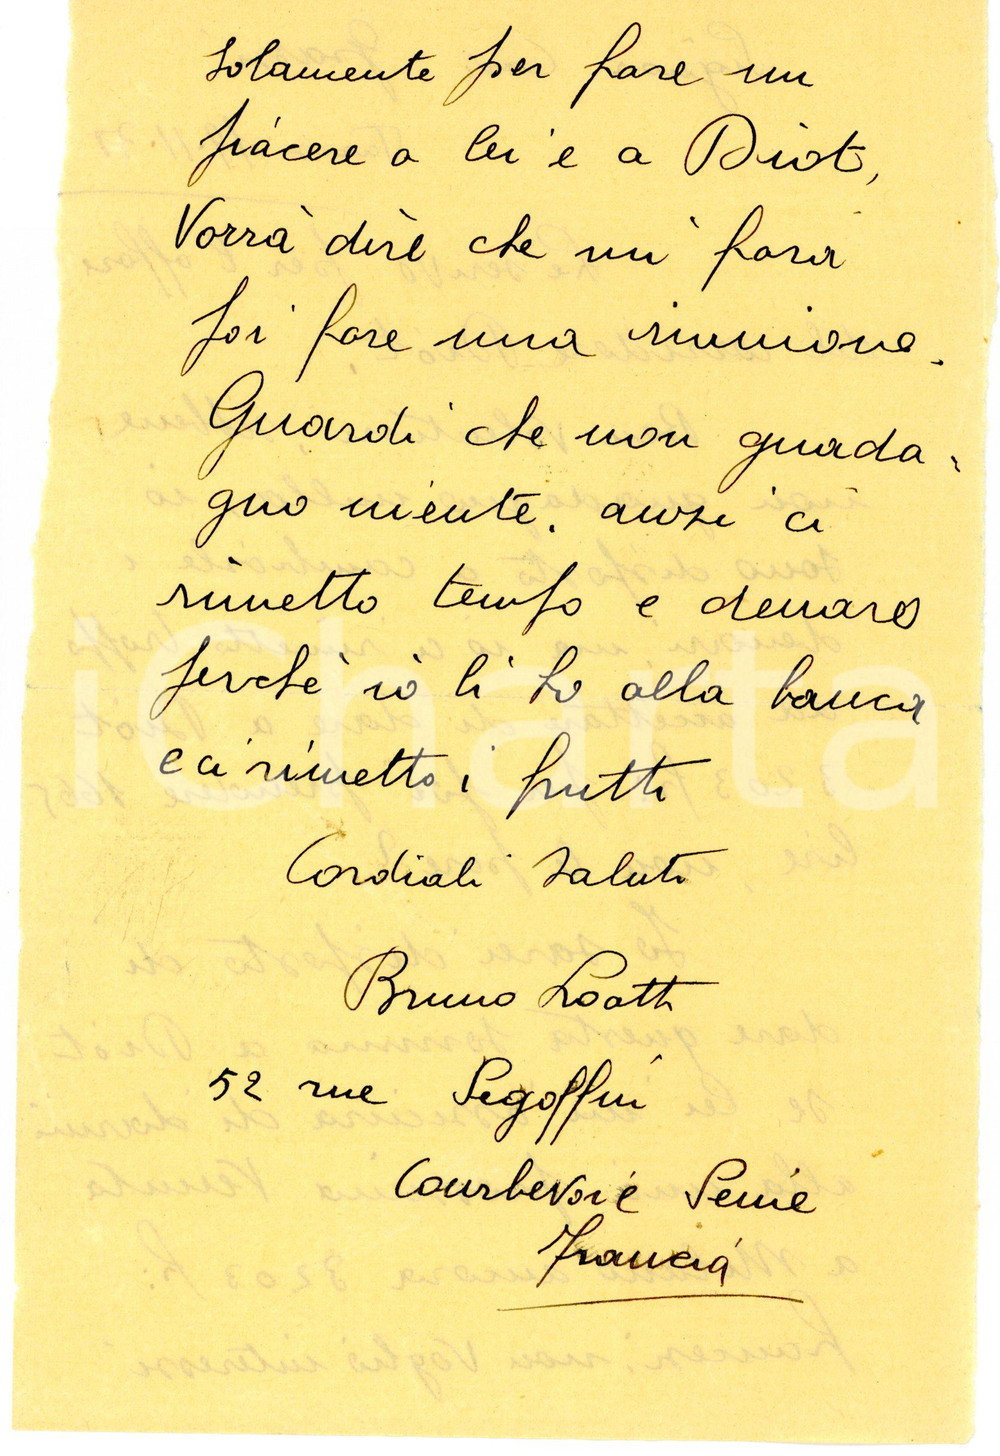 solamente per fare un
piacere a lei e a Diot,
Vorrà dire che mi farà
poi fare una riunione.
Guardi che non guada-
gno niente. anzi ci
rimetto tempo e denaro
perchè iò li ho alla banca
e ci rimetto i frutti
Cordiali saluti
Bruno Loatti
52 rue Segoffin
Courbevoie Seine
Francia
iCharta